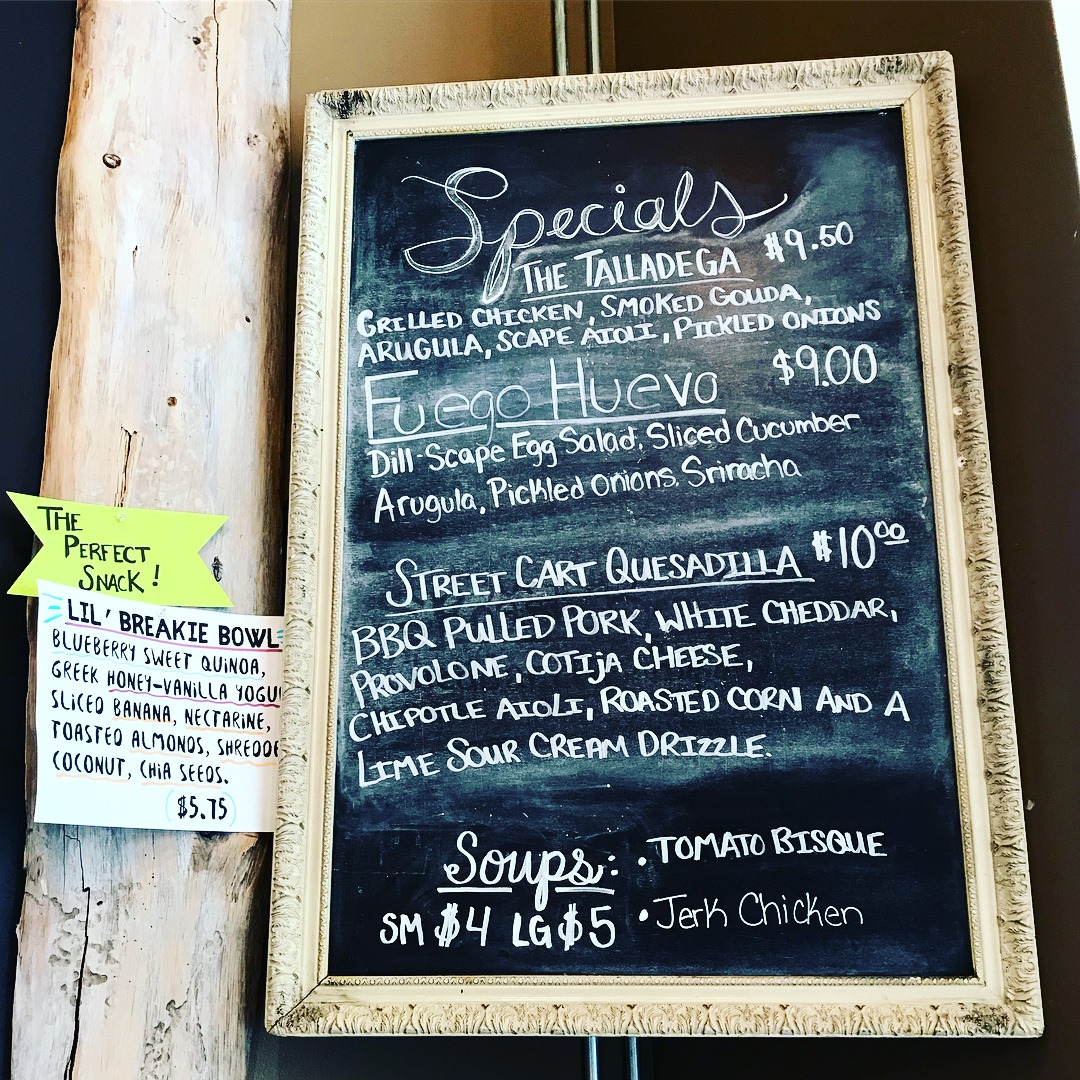 Specials
THE TALLADEGA $9.50
GRILLED CHICKEN, SMOKED GOUDA,
ARUGULA, SCAPE AIOLI, PICKLED ONIONS
Fuego Huevo $9.00
Dill-Scape Egg Salad, Sliced Cucumber
Arugula, Pickled Onions. Sriracha
STREET CART QUESADILLA $10.00
BBQ PULLED PORK, WHITE CHEDDAR,
PROVOLONE, COTIJA CHEESE,
CHIPOTLE AIOLI, ROASTED CORN AND A
LIME SOUR CREAM DRIZZLE.
Soups: • TOMATO BISQUE
SM $4 LG $5 • Jerk Chicken
THE
PERFECT
SNACK!
LIL' BREAKIE BOWL
BLUEBERRY SWEET QUINOA,
GREEK HONEY-VANILLA YOGU
SLICED BANANA, NECTARINE,
TOASTED ALMONDS, SHREDDE
COCONUT, CHIA SEEDS.
$5.75